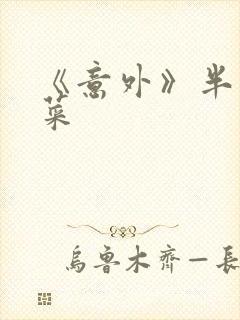 《意外》半
菜
烏魯木齊—長